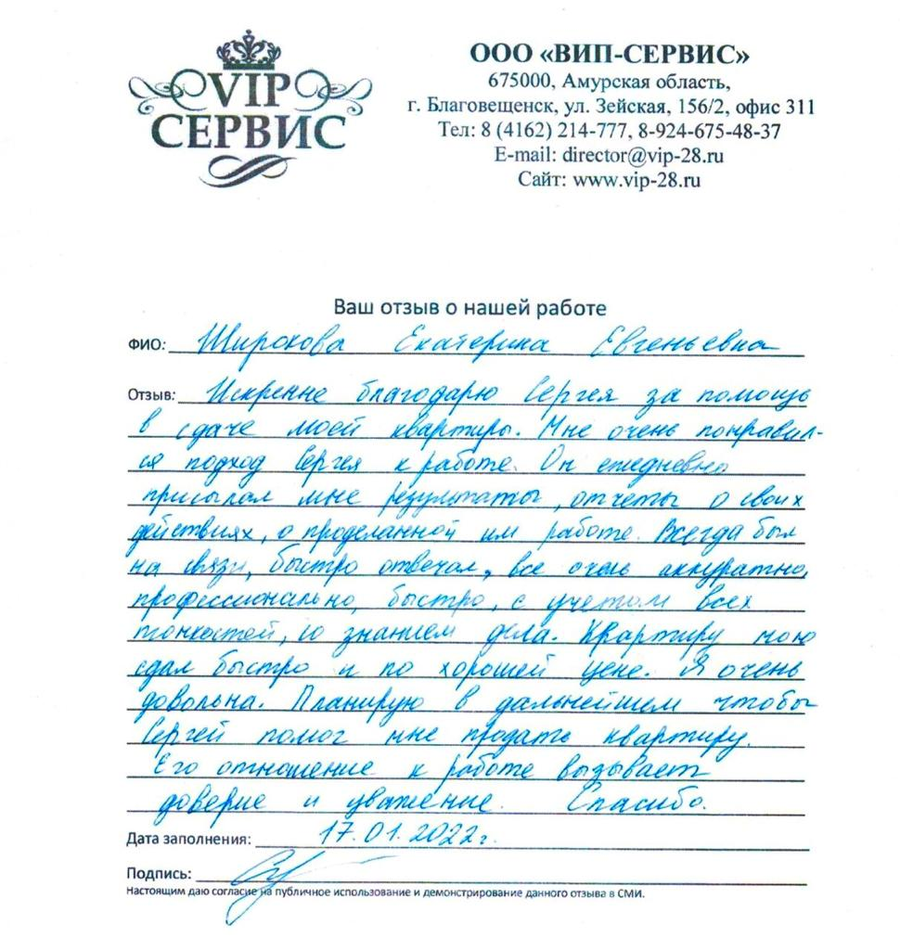 VIP
СЕРВИС
ООО «ВИП-СЕРВИС»
675000, Амурская область,
г. Благовещенск, ул. Зейская, 156/2, офис 311
Тел: 8 (4162) 214-777, 8-924-675-48-37
E-mail: director@vip-28.ru
Сайт: www.vip-28.ru
Ваш отзыв о нашей работе
ФИО: Широкова Екатерина Евгеньевна
Отзыв: Искренне благодарю Сергея за помощь
в сдаче моей квартиры. Мне очень понравил-
ся подход Сергея к работе. Он ежедневно
присылал мне результаты, отчеты о своих
действиях, о проделанной им работе. Всегда был
на связи, быстро отвечал, все очень аккуратно,
профессионально, быстро, с учетом всех
тонкостей, со знанием дела. Квартиру мою
сдал быстро и по хорошей цене. Я очень
довольна. Планирую в дальнейшем чтобы
Сергей помог мне продать квартиру.
Его отношение к работе вызывает
доверие и уважение. Спасибо.
Дата заполнения: 17.01.2022г.
Подпись:
Настоящим даю согласие на публичное использование и демонстрирование данного отзыва в СМИ.